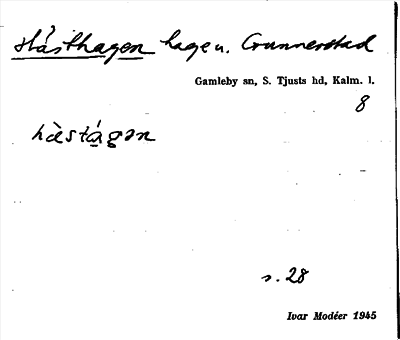 Hästhagen hage u. Gunnerstad
Gamleby sn, S. Tjusts hd, Kalm. l.
8
hàstágən
s. 28
Ivar Modéer 1945